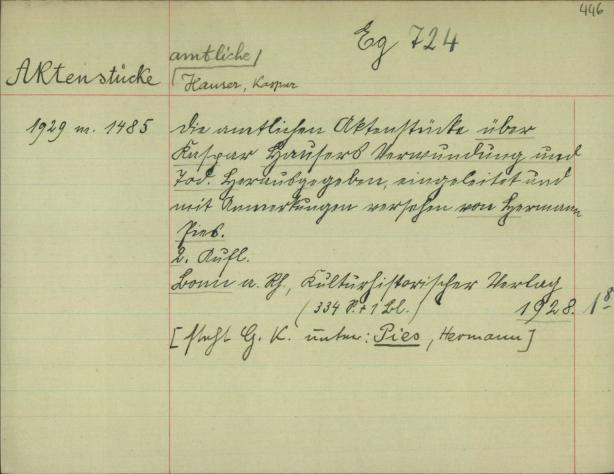 446
Eg 724
amtliche/
Aktenstücke
Hauser, Kaspar
1929 m. 1485
Die amtlichen Aktenstücke über
Kaspar Hausers Verwundung und
Tod. Herausgegeben, eingeleitet und
mit Anmerkungen versehen von Hermann
Pies.
2. Aufl.
Bonn a. Rh., Kulturhistorischer Verlag
(334 S. + 1 Bl.)
1928. 1 8
[steht G. K. unter: Pies, Hermann]